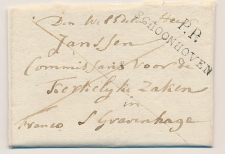 Den WelEdelen Heer
P.P.
SCHOONHOVEN
Janssen
Commissaris voor de
Kerkelyke Zaken
in
Franco S Gravenhage